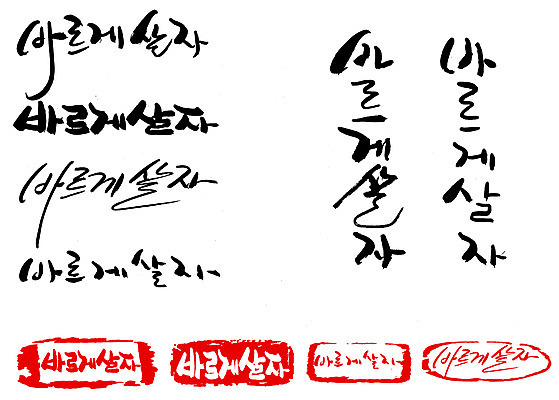 바르게 살자
바르게살자
바르게 살자
바르게 살자
바르게살자
바르게살자
바르게살자
바르게살자
바르게살자
바르게살자